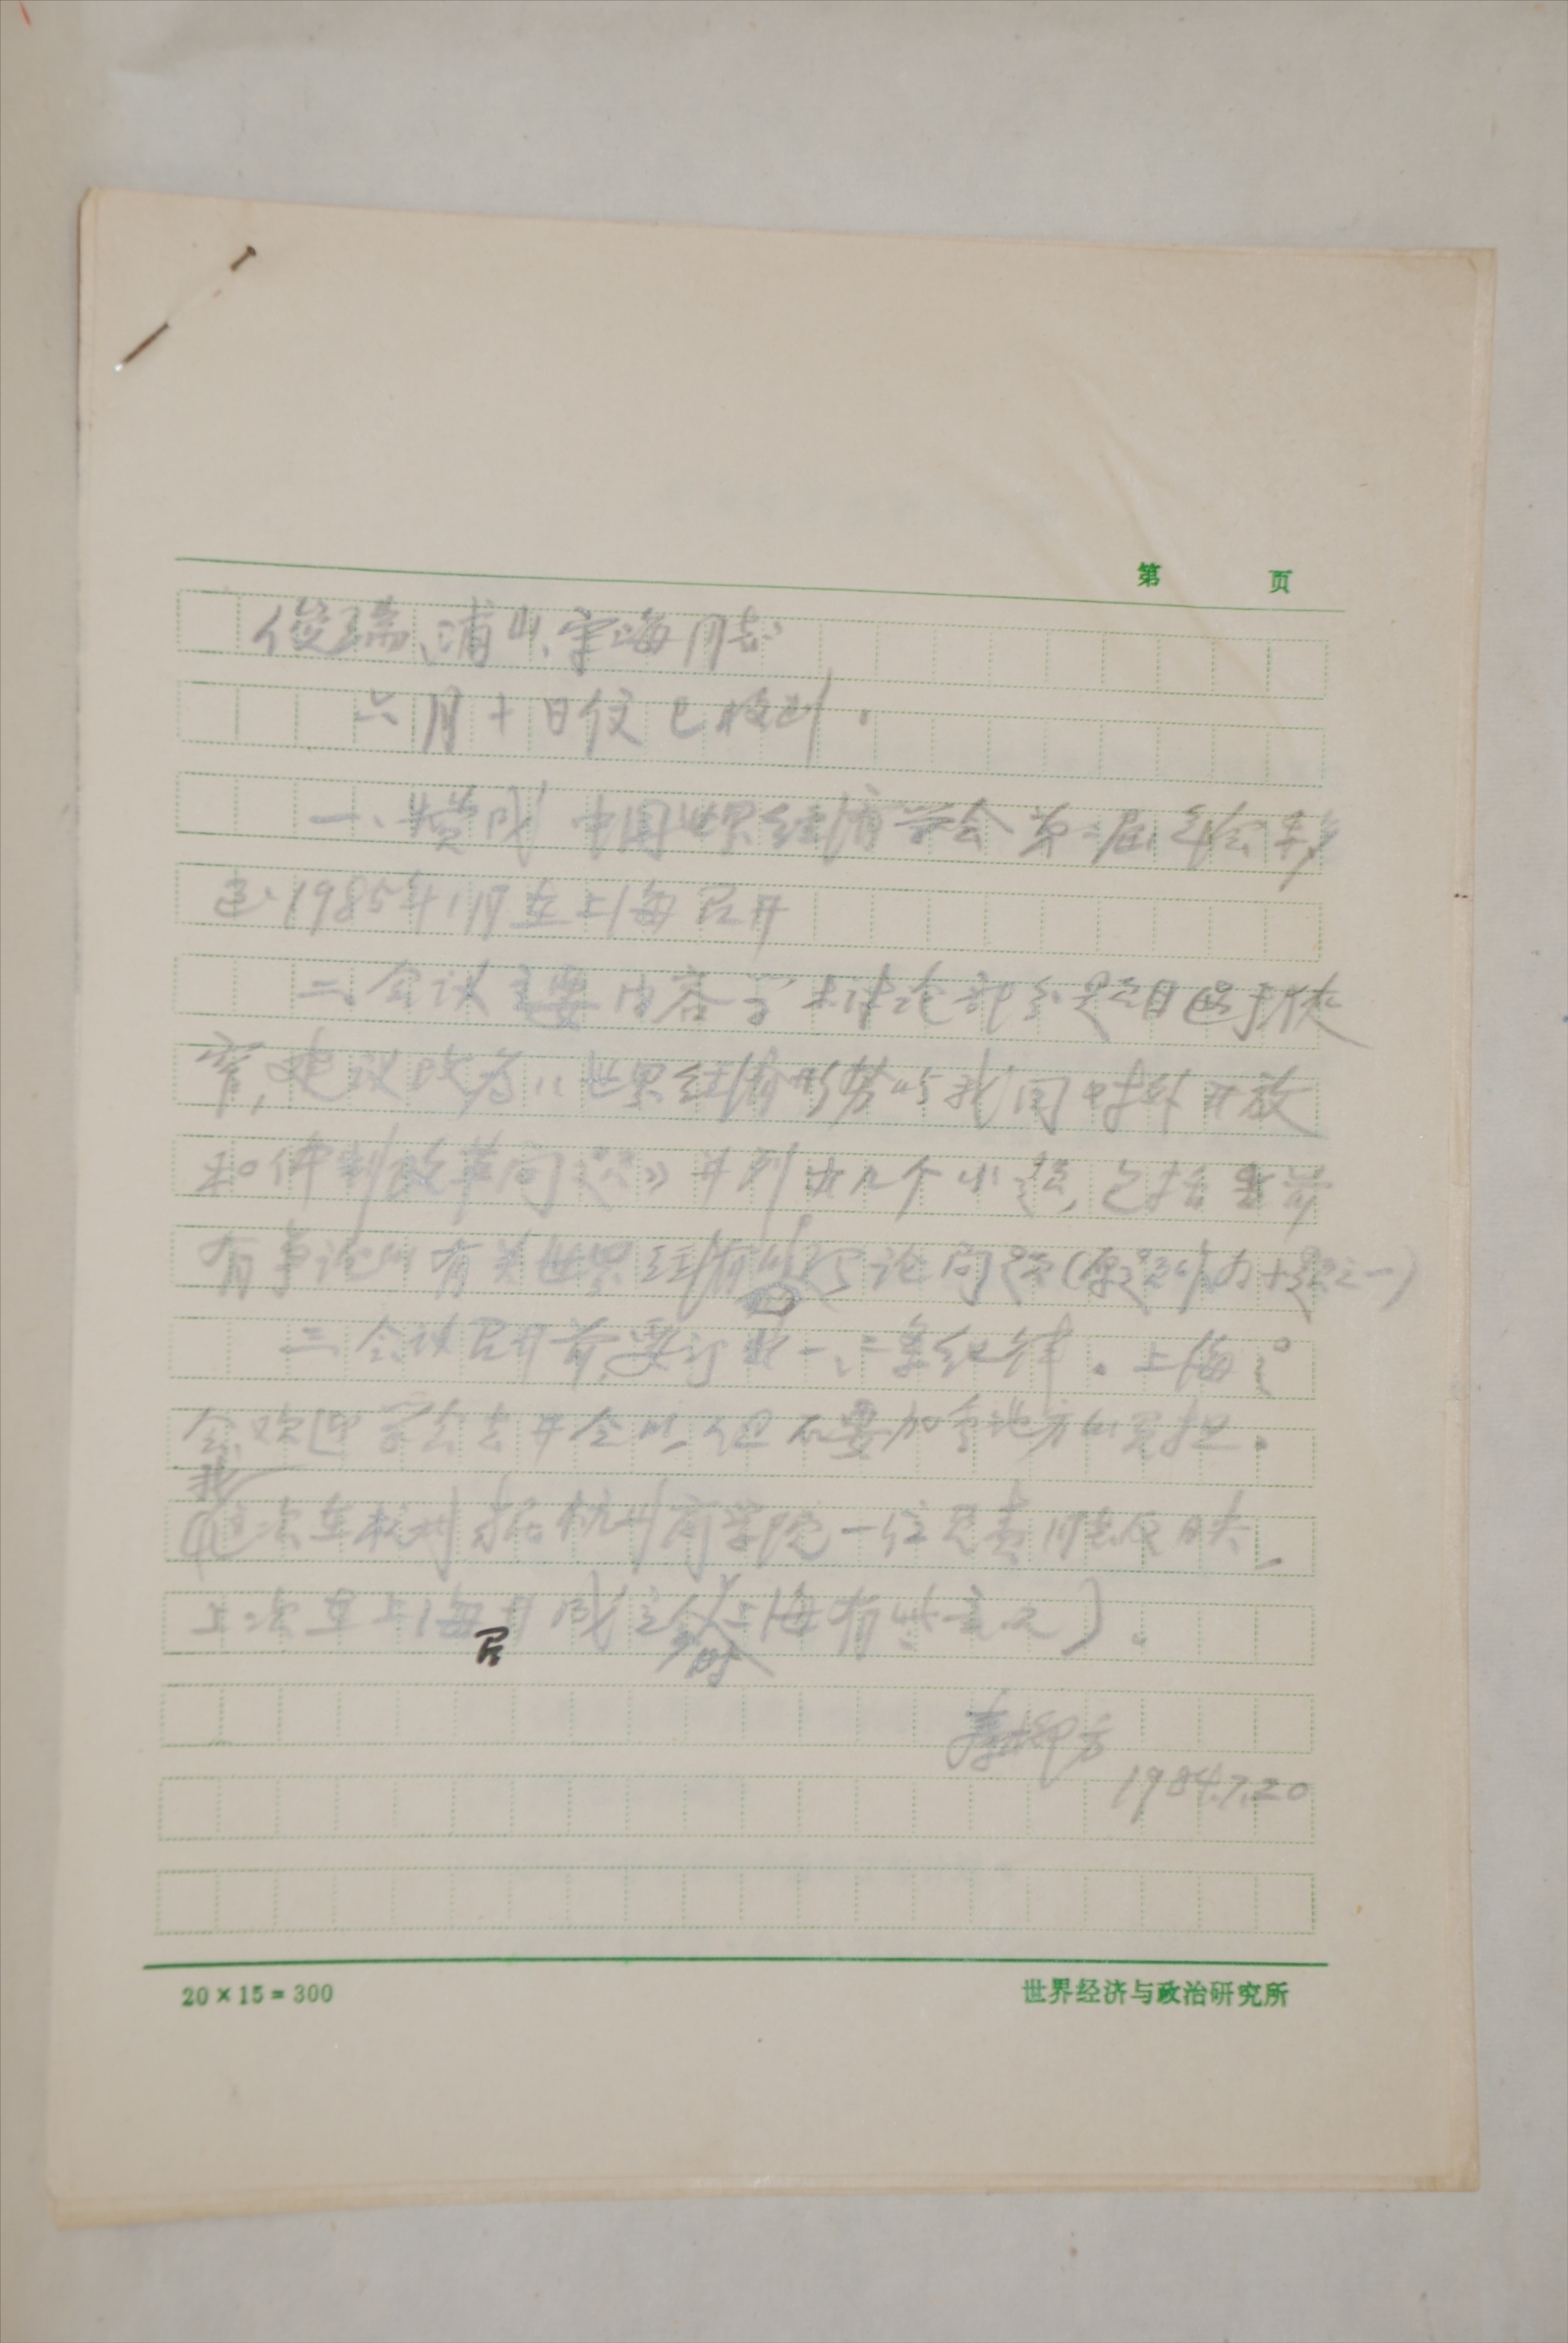 第 页
俊瑞、浦山、宗海同志
六月十日信已收到。
一、赞成中国世界经济学会第二届年会推
迟1985年1月在上海召开
二、会议主要内容学术讨论部分题目过于狭
窄，建议改为《世界经济形势与我国对外开放
和体制改革问题》并列出几个小题，包括目前
有争论的有关世界经济的理论问题（原题列为小题之一）
三、会议召开前，要订出一、二条纪律。上海
会欢迎学会去开会的，但不要加重地方的负担。
我
（这次在杭州 杭州商学院一位负责同志反映，
上次在上海开成立会上海有些意见）。
召
时
1984.7.20
20×15=300 世界经济与政治研究所